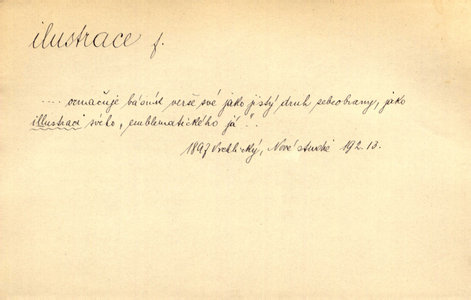 ilustrace f.
.... označuje básník verše své jako jistý druh sebeobrany, jako
illustraci svého „emblematického já“..
1897 Vrchlický, Nové studie 192.13.